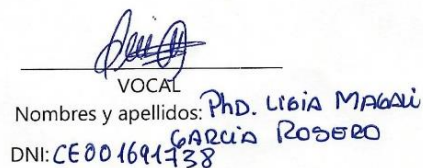 VOCAL
Nombres y apellidos: PhD. LIGIA MAGALI
GARCIA ROSERO
DNI: CE001691738